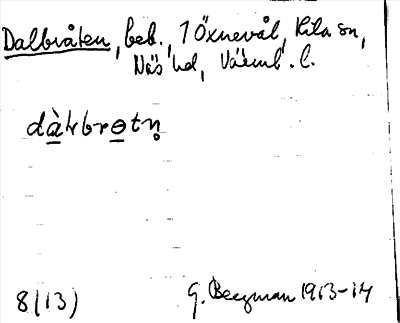 Dalbråten, beb. 1 Öxnevål, Kila sn,
Näs hd, Värml. l.
dàlbrɵtn̥
8(13)
G. Bergman 1913-14